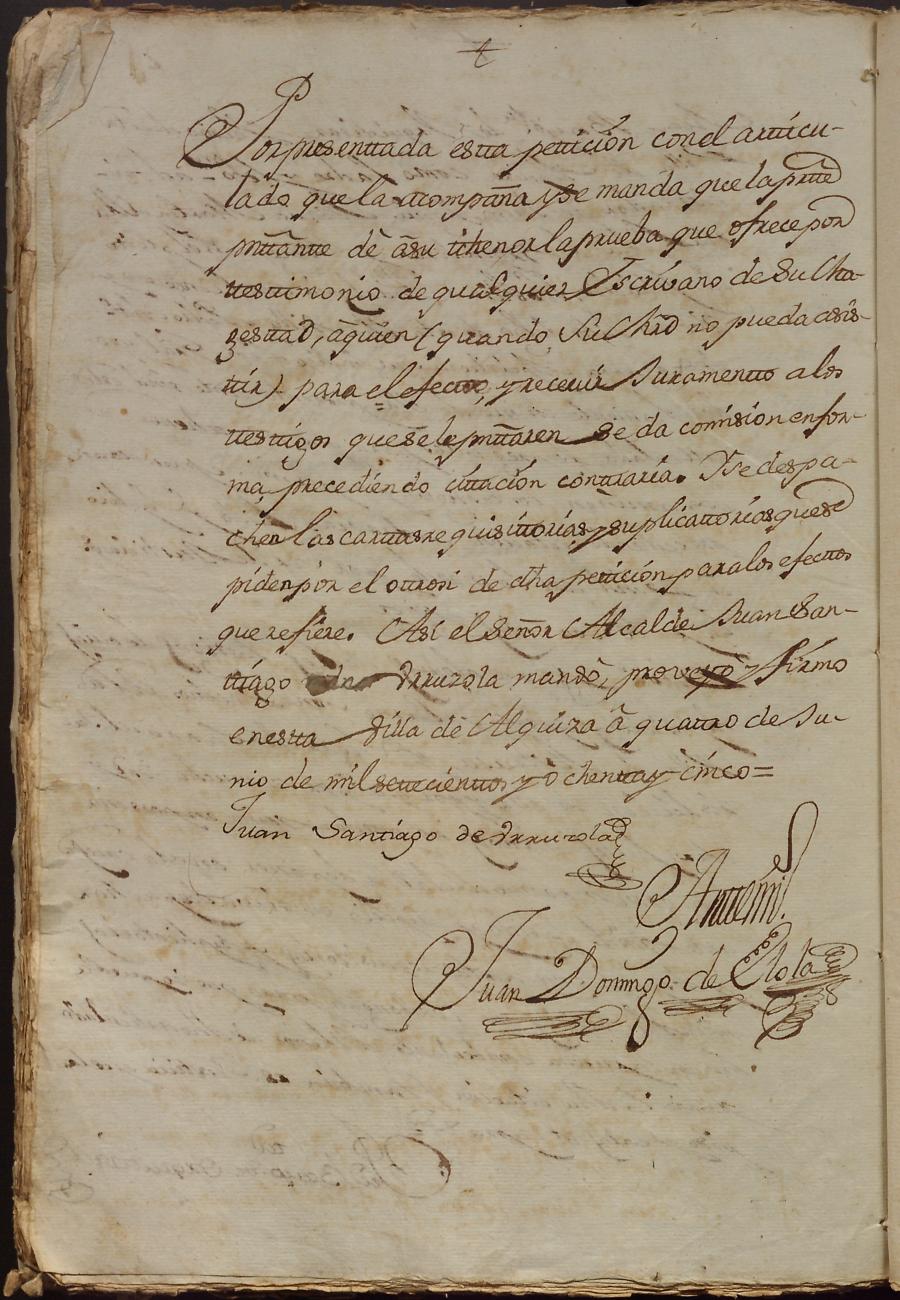 Por presenttada estta petición con el artticu-
lado que la acompaña y se manda que la prñte
prñttante dè âsu tthenor la prueba que ofrece por
ttesttimonio de qualquier Escrivano de Su Ma-
gesttad, âquien (quando Su Mrd no pueda asis-
ttir) para el efectto, y recevir Juramentto a los
ttesttigos que se le prñttaren se da comision en for-
ma, precediendo cittación conttraria. Y se despa-
chen las carttas requisittorias y suplicattorias que se
piden por el ottrosi de dha petición para los efecttos
que refiere. Asi el Señor Alcalde Juan San-
ttiago de Vrruzola mandò, proveyò y firmo
en estta Villa de Alquiza â quattro de Ju-
nio de mil settecienttos y ôchentta y cinco=
Juan Santiago de Vrruzola
Antte mi
Juan Domingo de Elola